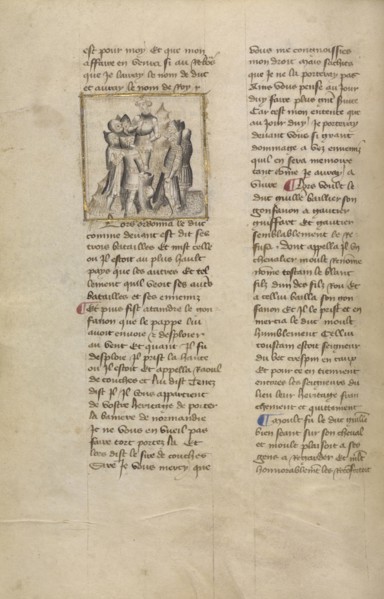 est pour moy Et que mon
affaire en venra si au
que Je lairay le nom de duc
et auray le nom de Roy
Lors ordonna le duc
comme deuant est dit ses
trois batailles Et mist celle
ou Il estoit au plus hault
pays que les autres Et tel
lement quil veoit ses autres
batailles et ses ennemis
Et puis fist attaindre le
fanon que le pappe lui
auoit enuoie desploier
au vent Et quant Il fu
desploie Il prist la hante
ou Il estoit Et appella Raoul
de couches et lui dist Tenez
dist Il Il vous appartient
de vostre heritage de porter
la baniere de normandie
Je ne vous en vueil pas
faire tort portez la Et
lors dist le sire de couches
Sire Je vous mercy que
vous me connoissies
mon droit Mais sachies
que Je ne la porteray pas
vous pense au Jour
duy faire plus grant seruice
Car cest mon entente que
au Jour duy Je porteray
deuant vous si grant
dommage a voz ennemis
quil en sera memoire
tant comme Je auray a
viure Lors voult le
duc guille baillier son
gonfanon a gautier
guiffart Et gautier
semblablement le Re
fusa dont appella Il vn
cheualier moult Renomme
nomme tostain le blanc
filz du filz Rou Et
a cellui bailla son gon
fanon Et Il le prist et en
mercia le duc moult
humblement Cellui
toustain estoit seigneur
du bec crespin en caux
Et pour ce en tiennent
encores les seigneurs du
lieu leur heritage fran
chement et quittement
Moult fu le duc guille
bien seant sur son cheual
et moult plaisoit a ses
gens a Regarder Et
honnorablement les